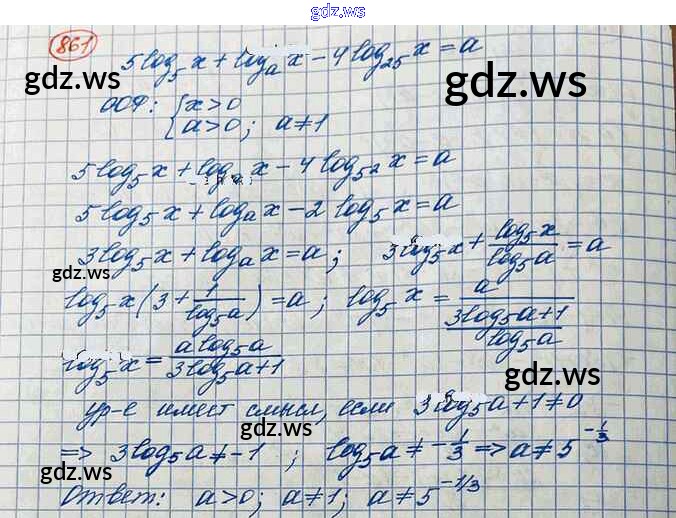 gdz.ws
861
5log₅x + logₐx - 4log₂₅x = a
gdz.ws
gdz.ws
ООФ: { x > 0
a > 0; a ≠ 1
5log₅x + logₐx - 4log₅²x = a
5log₅x + logₐx - 2log₅x = a
3log₅x + logₐx = a; 3log₅x + log₅x/log₅a = a
gdz.ws
log₅x(3 + 1/log₅a) = a; log₅x = a/((3log₅a+1)/log₅a)
log₅x = a log₅a/(3log₅a+1)
gdz.ws
ур-е имеет смысл, если 3log₅a + 1 ≠ 0
gdz.ws
=> 3log₅a ≠ -1; log₅a ≠ -1/3 => a ≠ 5^(-1/3)
gdz.ws
Ответ: a > 0; a ≠ 1; a ≠ 5^(-1/3)
gdz.ws